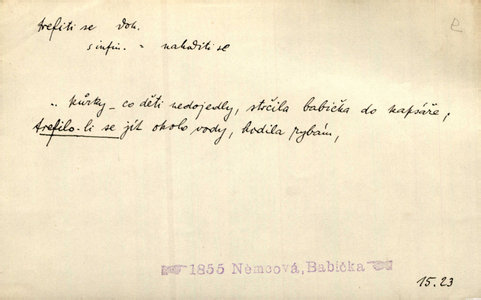 trefiti se dok.
s infin. = nahoditi se
e
„ kůrky – co děti nedojedly, strčila babička do kapsáře,
trefilo-li se jít okolo vody, hodila rybám,
1855 Němcová, Babička
15.23